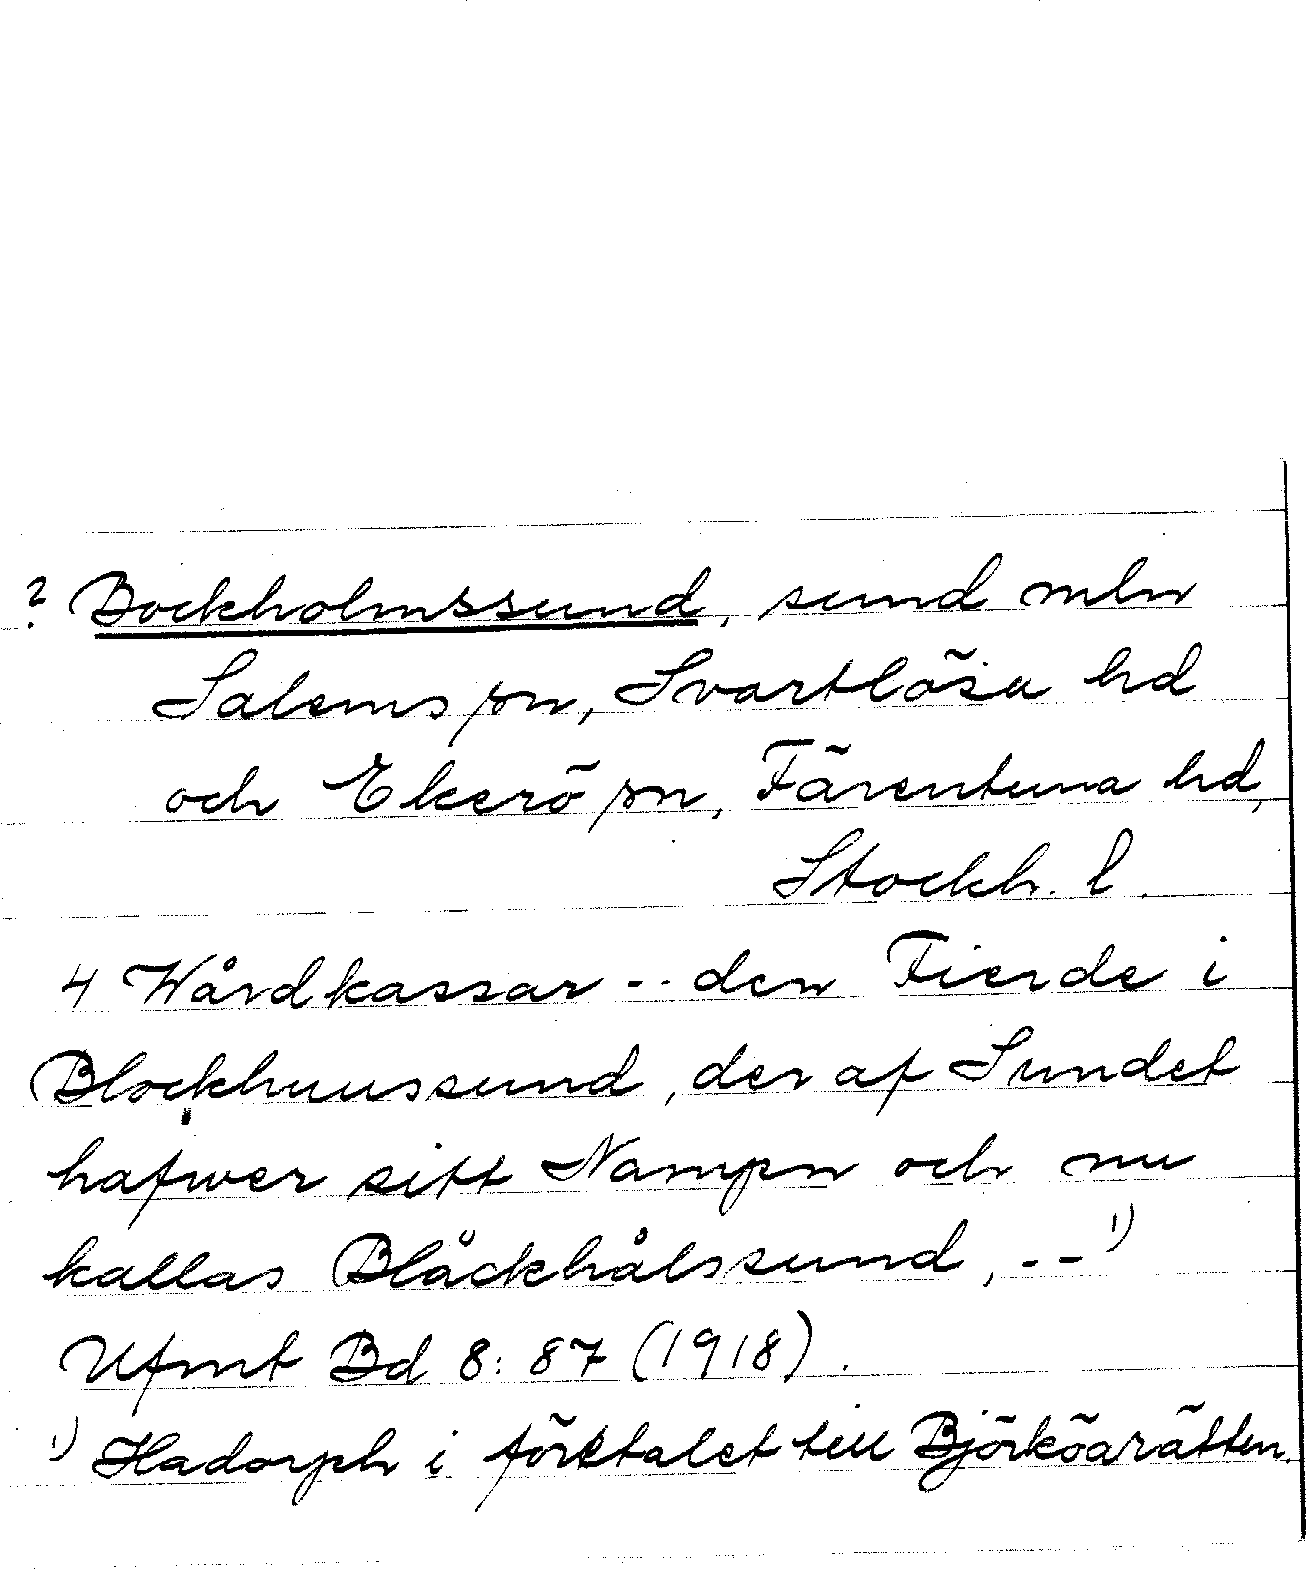 ? Bockholmssund, sund mln
Salems sn, Svartlösa hd
och Ekerö sn, Färentuna hd,
Stockh. l.
4 Wårdkassar -- den Fierde i
Blockhuussund, der af Sundet
hafwer sitt Nampn och nu
kallas Bläckhålssund, -- 1)
Ufmt Bd 8: 87 (1918).
1) Hadorph i företalet till Björköarätten.